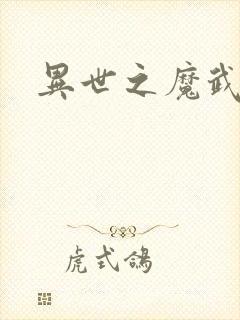 異世之魔武
虎式鴿